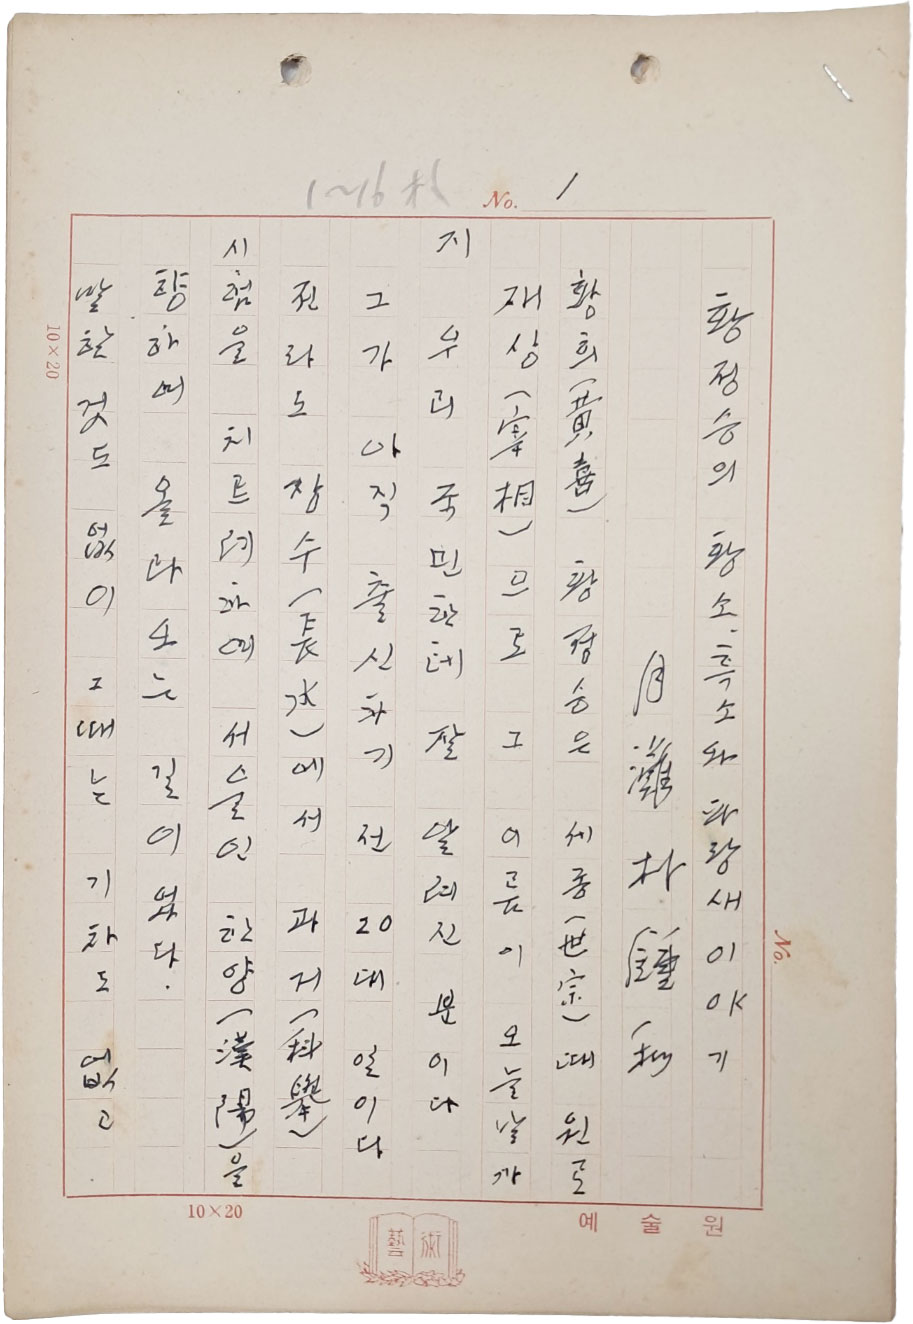 1~16 枚
No. 1
황정승의 황소·흑소와 파랑새 이야기
月灘 朴鍾和
황희(黃喜) 황정승은 세종(世宗)때 원로
재상(宰相)으로 그 이름이 오늘날까
지 우리 국민한테 잘 알려진 분이다
그가 아직 출신하기 전 20대 일이다
전라도 장수(長水)에서 과거(科擧)
시험을 치르려하여 서울인 한양(漢陽)을
향하여 올라오는 길이었다.
말할 것도 없이 그때는 기차도 없고
No.
10×20
10×20
예술원
藝術